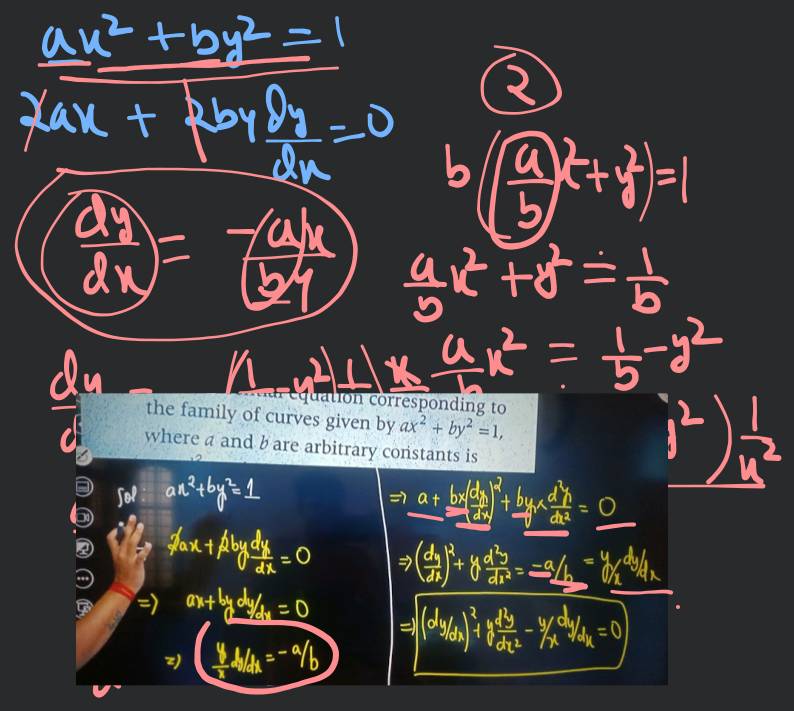 ax² + by² = 1
2ax + 2by dy/dx = 0
dy/dx = -ax/by
2
b(a/b x² + y²) = 1
a/b x² + y² = 1/b
a/b x² = 1/b - y²
) 1/x²
equation corresponding to
the family of curves given by ax² + by² = 1,
where a and b are arbitrary constants is
Sol: ax²+by²=1
2ax + 2by dy/dx = 0
⇒ ax+by dy/dx = 0
⇒ y/x dy/dx = -a/b
⇒ a + bx(dy/dx)² + by x d²y/dx² = 0
⇒ (dy/dx)² + y d²y/dx² = -a/b = y/x dy/dx
⇒ (dy/dx)² + y d²y/dx² - y/x dy/dx = 0